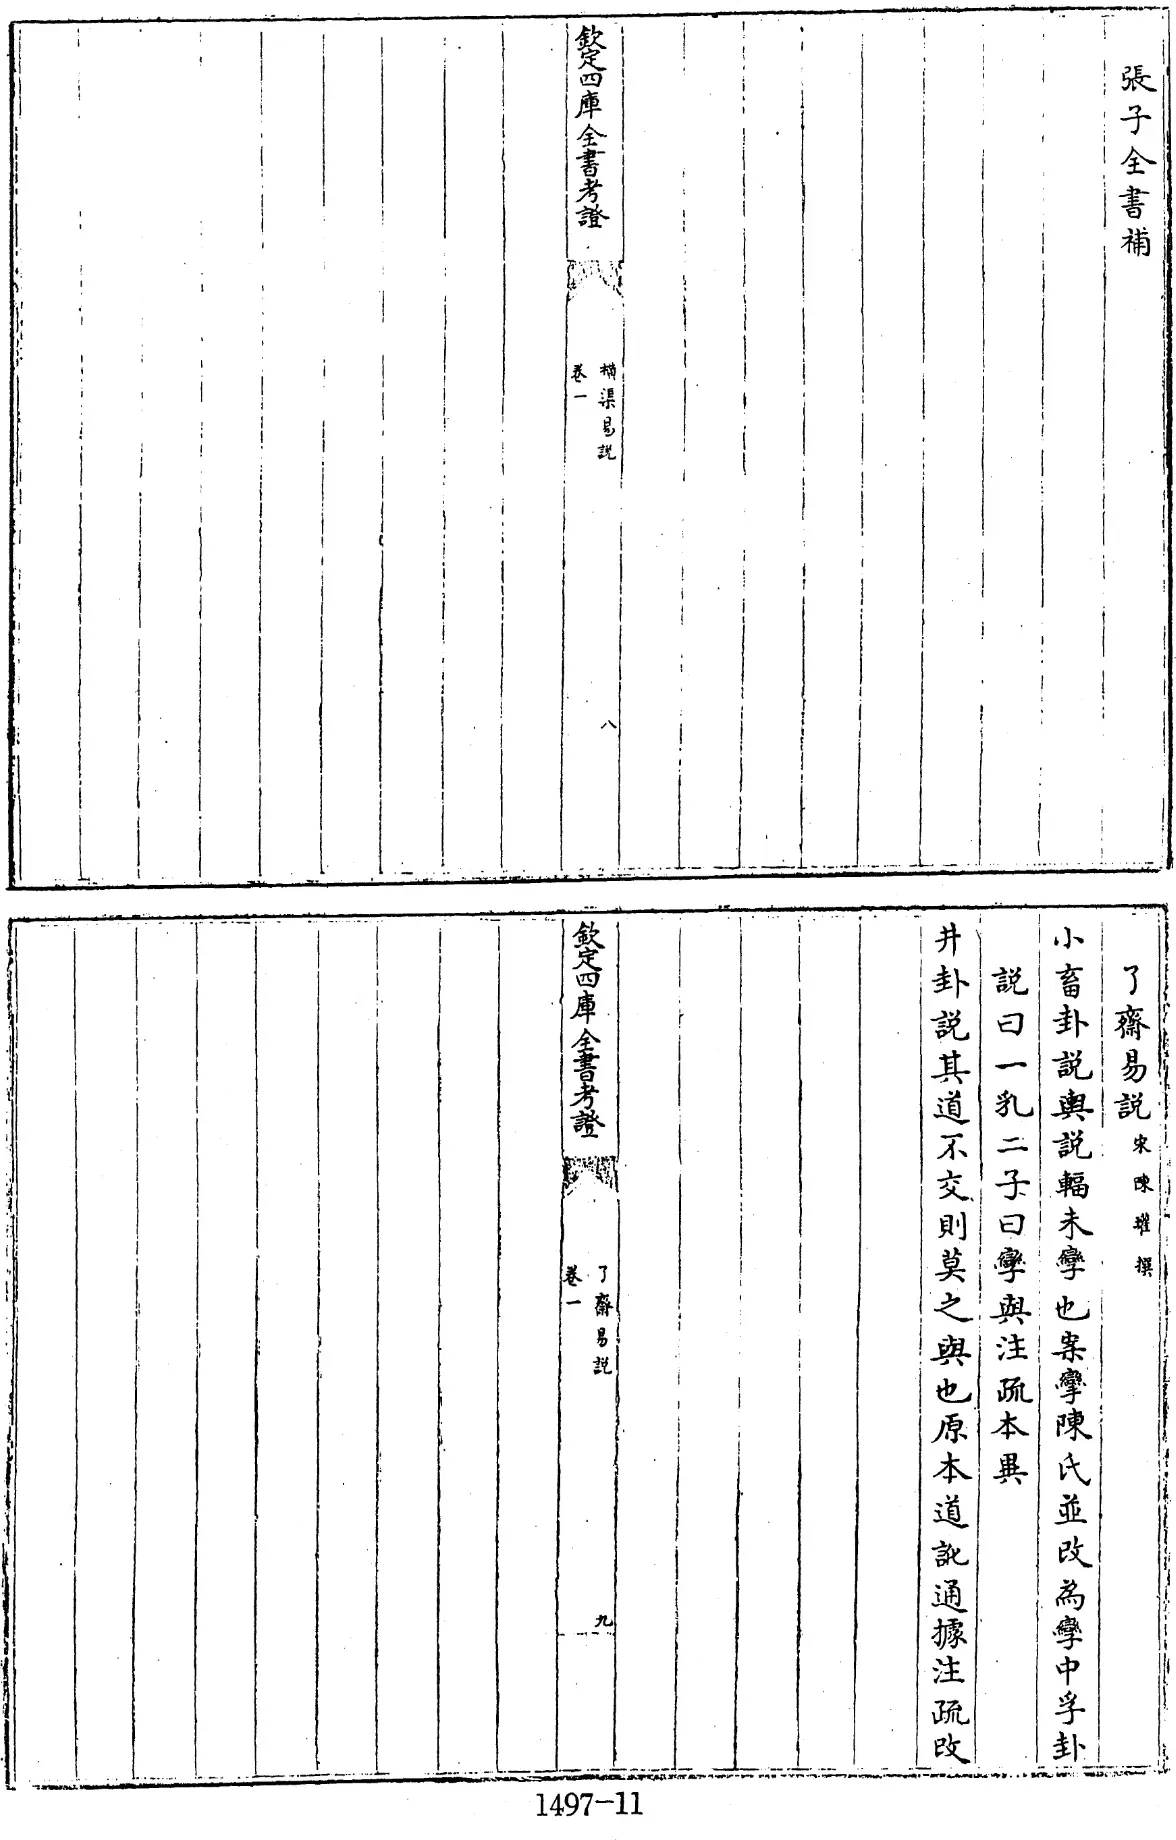 張子全書補
欽定四庫全書考證
橫渠易説
卷一
八
了齋易説 宋陳瓘撰
小畜卦説輿説輻未孿也案攣陳氏並改為孿中孚卦
説曰一乳二子曰孿與注疏本異
井卦説其道不交則莫之與也原本道訛通據注疏改
欽定四庫全書考證
了齋易説
卷一
九
1497-11